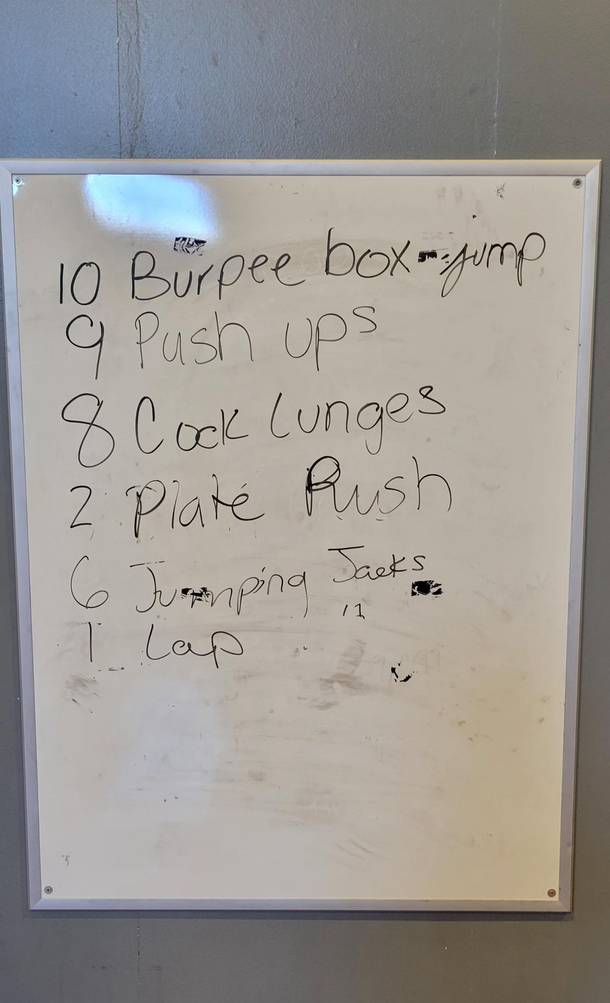 10 Burpee box-jump
9 Push ups
8 Cock lunges
2 Plate Push
6 Jumping Jacks
1 Lap